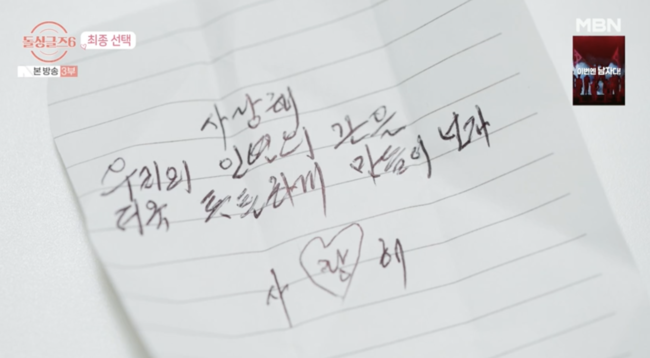 돌싱글즈6 최종 선택
본 방송 3부
MBN
이번엔 남자다!
사랑해
우리의 인연의 끈을
더욱 튼튼하게
사랑해